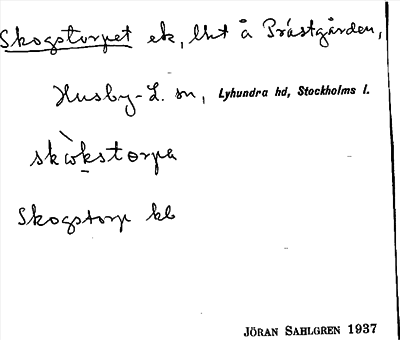 Skogstorpet ek, lht å Prästgården,
Husby-L. sn, Lyhundra hd, Stockholms l.
skωkstorpa
Skogstorp kb
JÖRAN SAHLGREN 1937